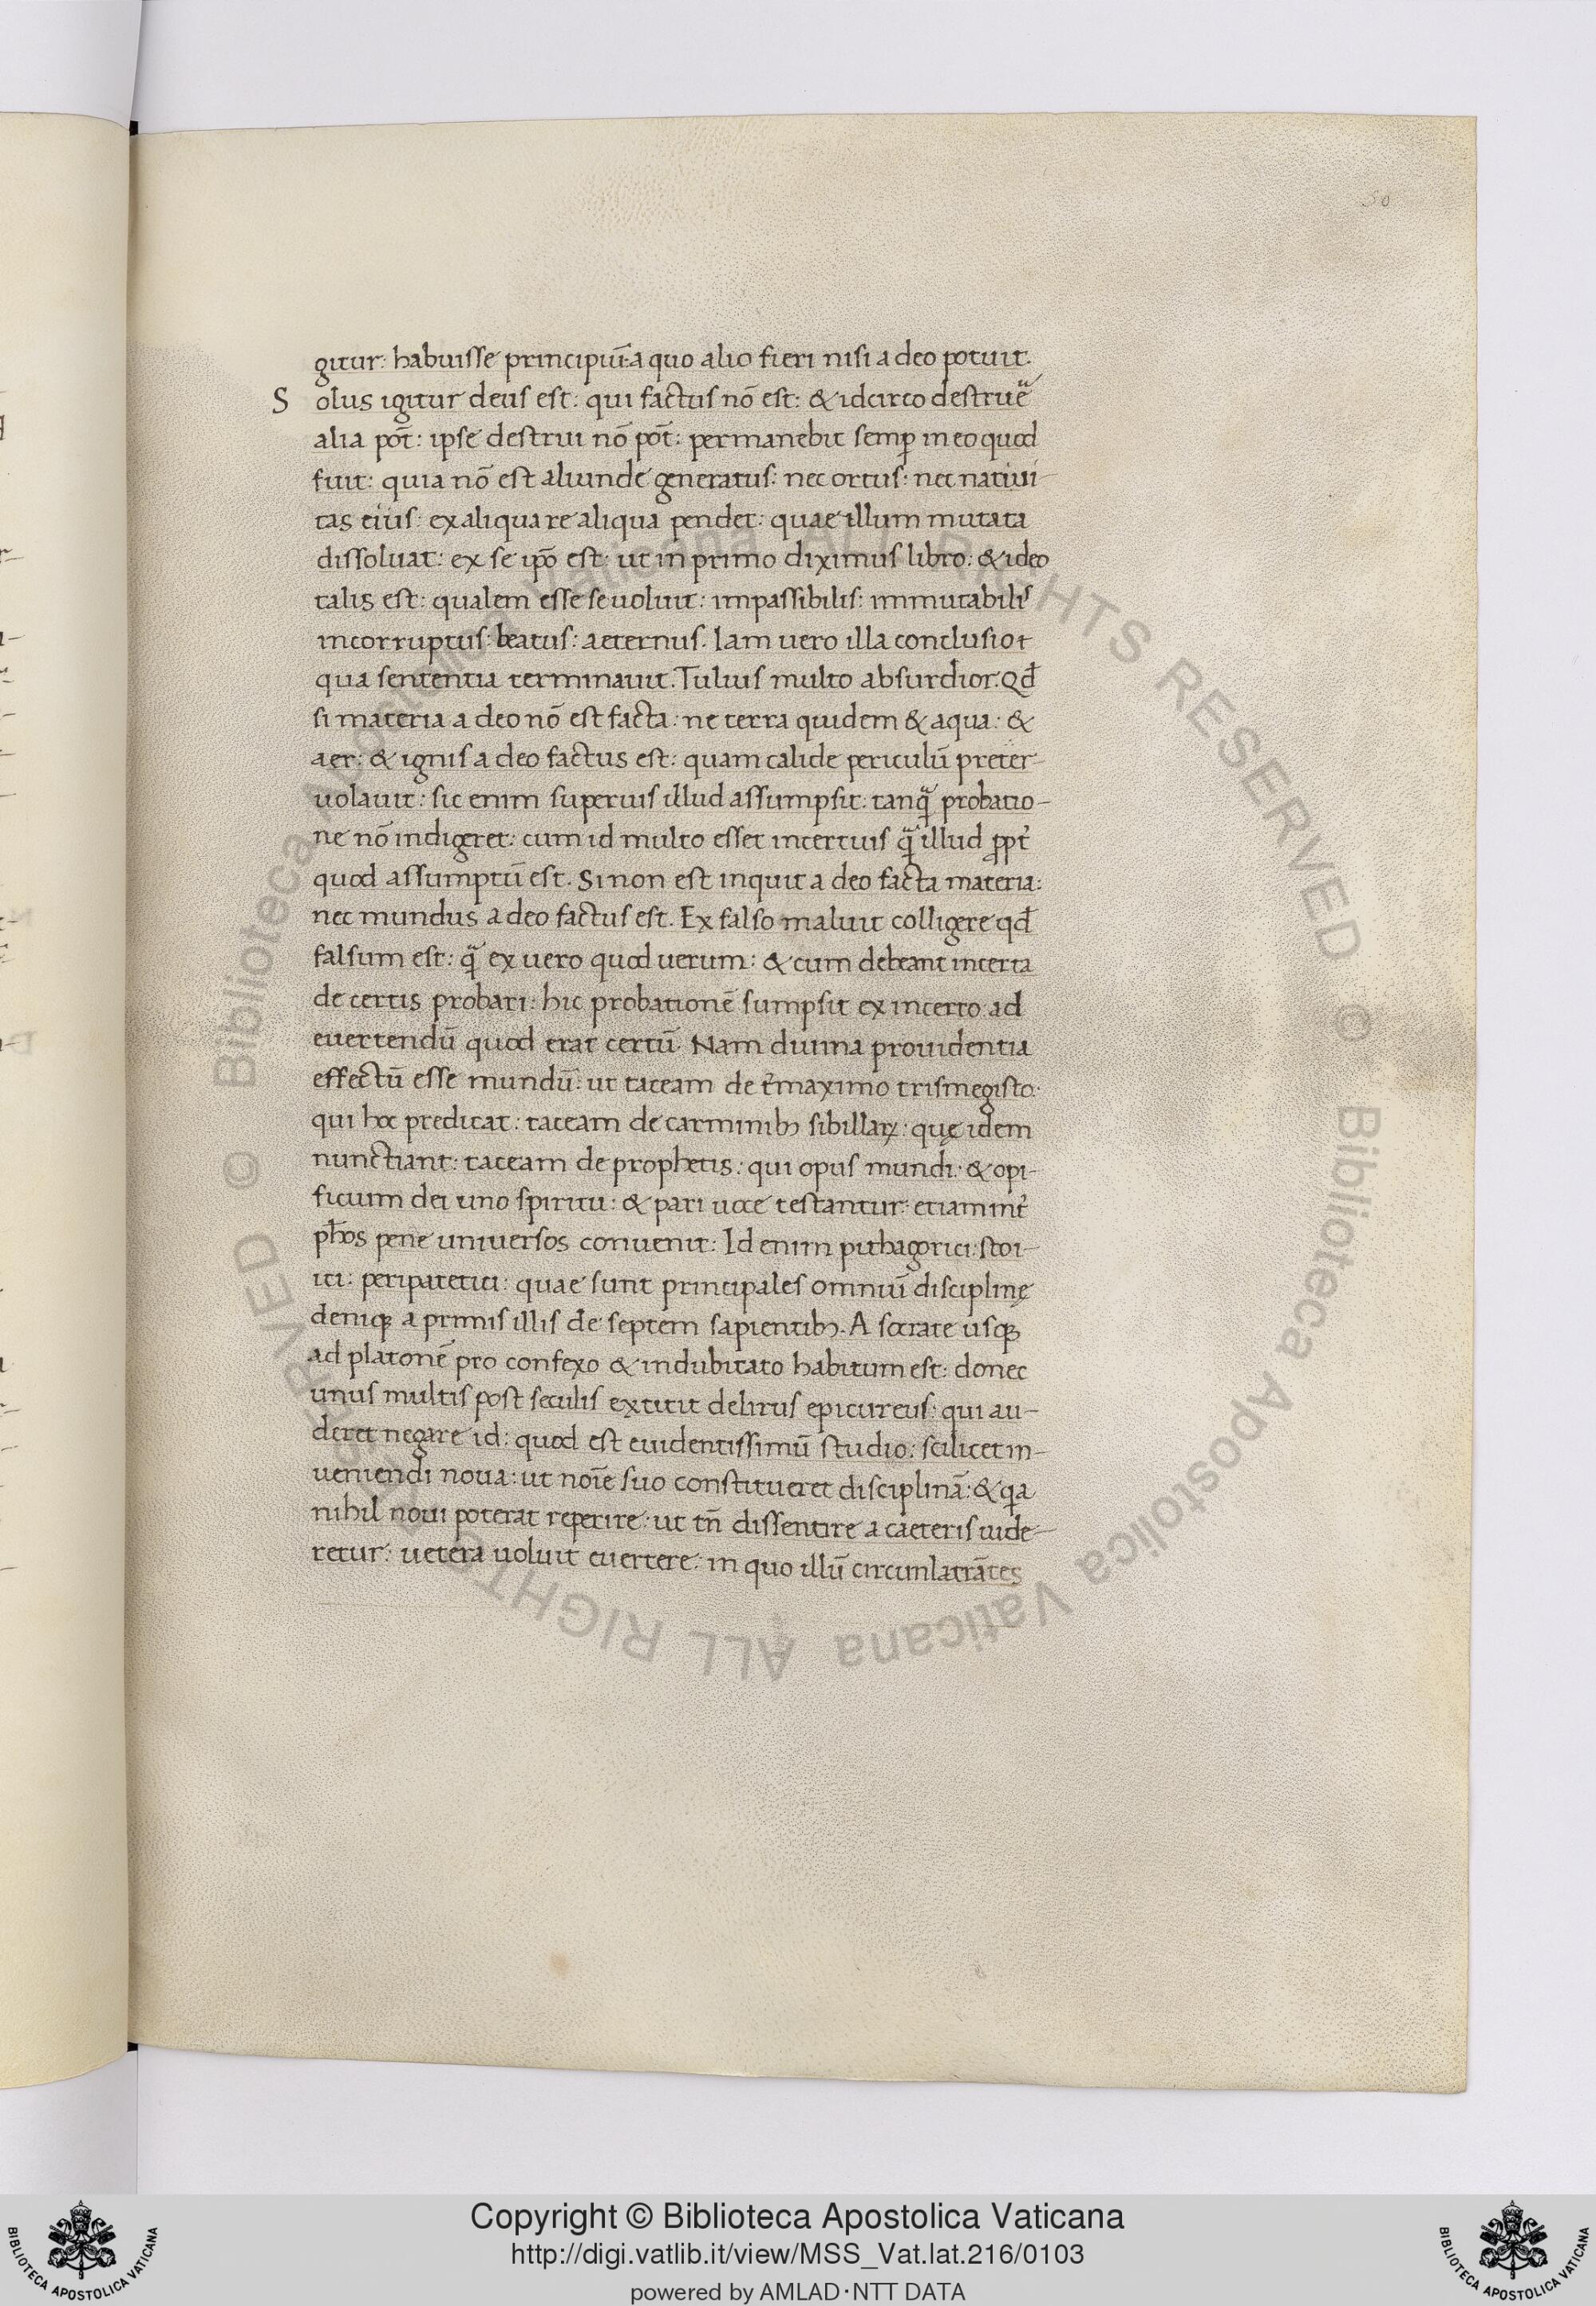 50
gitur: habuisse principiū: a quo alio fieri nisi a deo potuit.
Solus igitur deus est: qui factus nō est: & idcirco destruēᵃ
alia pōt: ipse destrui nō pōt: permanebit semꝑ in eo quod
fuit: quia nō est aliunde generatus: nec ortus: nec natiui-
tas eius: ex aliqua re aliqua pendet: quae illum mutata
dissoluat: ex se ipō est: ut in primo diximus libro: & ideo
talis est: qualem esse se uoluit: impassibilis: immutabilis
incorruptus: beatus: aeternus. Iam uero illa conclusio ē
qua sententia terminauit. Tulius multo absurdior. Qđ
si materia a deo nō est facta: ne terra quidem & aqua: &
aer: & ignis a deo factus est: quam calide periculū preter-
uolauit: sic enim superuis illud assumpsit: tanq̄ probatio-
ne nō indigeret: cum id multo esset incertuis q̄ illud ꝓpt̄
quod assumptū est. Si non est inquit a deo facta materia:
nec mundus a deo factus est. Ex falso maluit colligere qđ
falsum est: q̄ ex uero quod uerum: & cum debeant incerta
de certis probari: hic probationē sumpsit ex incerto: ad
euertendū quod erat certū. Nam diuina prouidentia
effectū esse mundū: ut taceam de t̄maximo trismegisto:
qui hoc predicat: taceam de carminibꝫ sibillaꝝ: quę idem
nunctiant: taceam de prophetis: qui opus mundi: & opi-
ficium dei uno spiritu: & pari uoce testantur: etiam int̄
ph̄os pene universos convenit: Id enim pithagorici: stoi-
ici: peripatetici: quae sunt principales omniū disciplinę
deniqꝫ a primis illis de septem sapientibꝫ. A socrate usqꝫ
ad platonē pro confexo & indubitato habitum est: donec
unus multis post seculis extitit delirus epicureus: qui au-
deret negare id: quod est euidentissimū studio: scilicet in-
veniendi noua: ut noīe suo constitueret disciplinā: & qa
nihil noui poterat reperire: ut tn̄ dissentire a caeteris uide-
retur: uetera uoluit euertere: in quo illū circunlatrātes
Copyright © Biblioteca Apostolica Vaticana
http://digi.vatlib.it/view/MSS_Vat.lat.216/0103
powered by AMLAD·NTT DATA